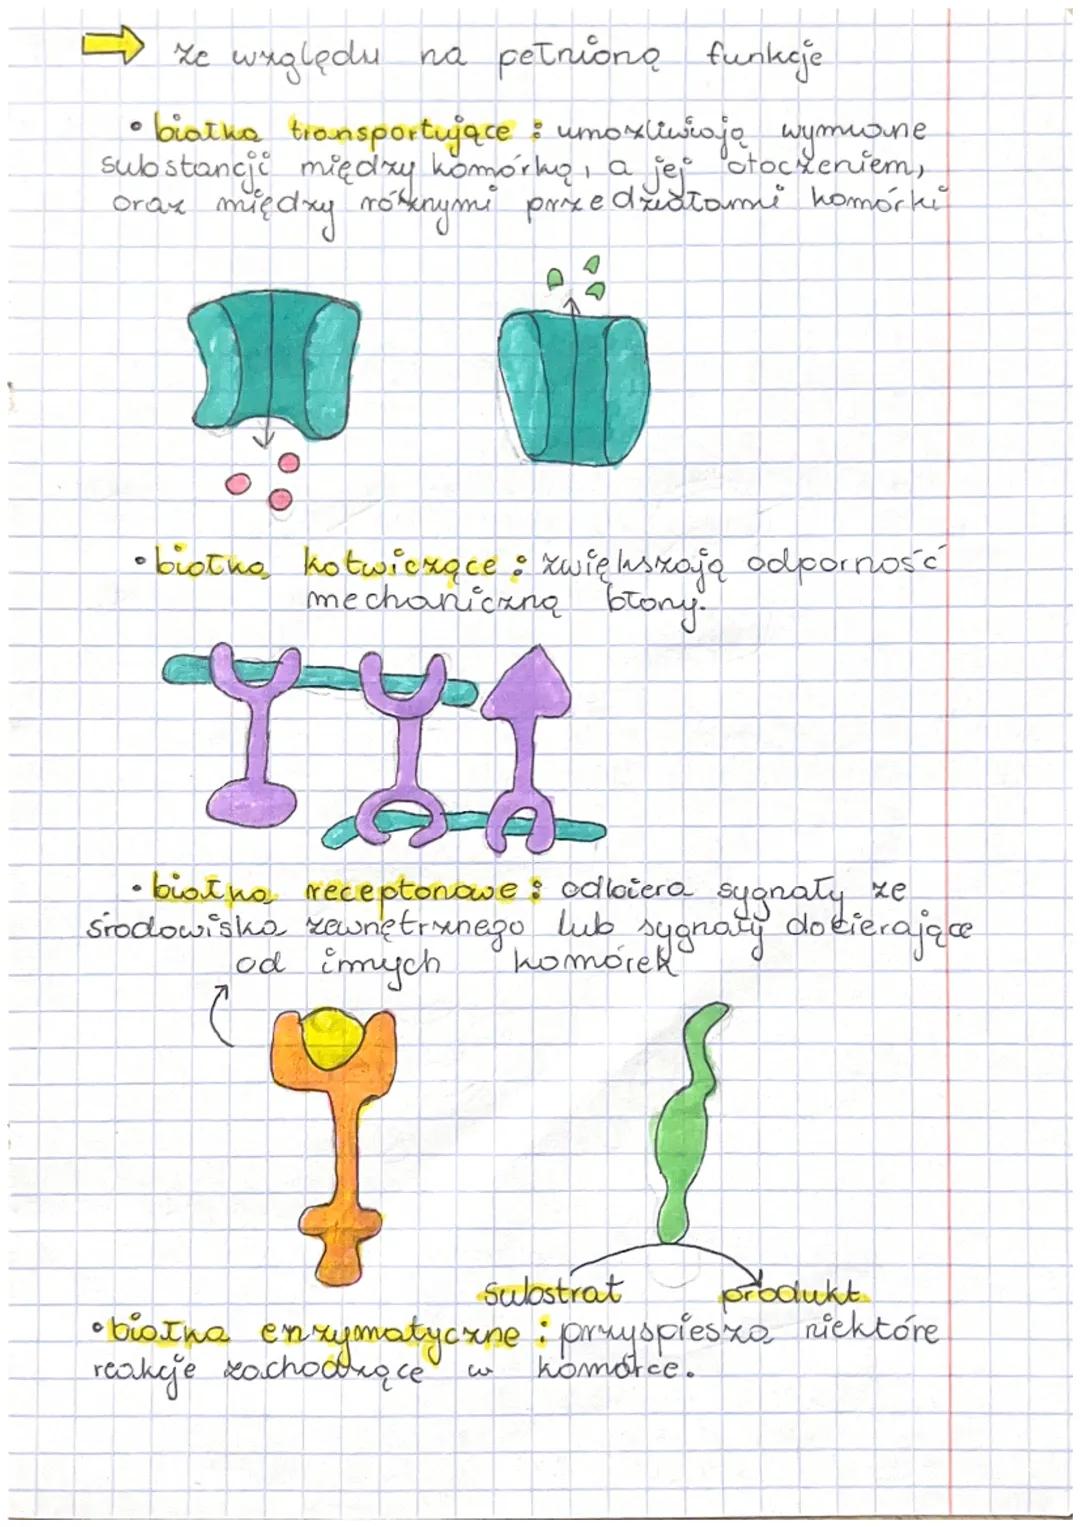 ze względu na pełnioną funkcje
• białka transportujące : umożliwiają wymianę
substancji między komórką, a jej otoczeniem,
oraz między różnymi przedziałami komórki
• białka kotwiczące : zwiększają odporność
mechaniczną błony.
• białka receptorowe : odbiera sygnały ze
środowiska zewnętrznego lub sygnały docierające
od innych komórek
substrat produkt
• białka enzymatyczne : przyspiesza niektóre
reakcje zachodzące w komórce.